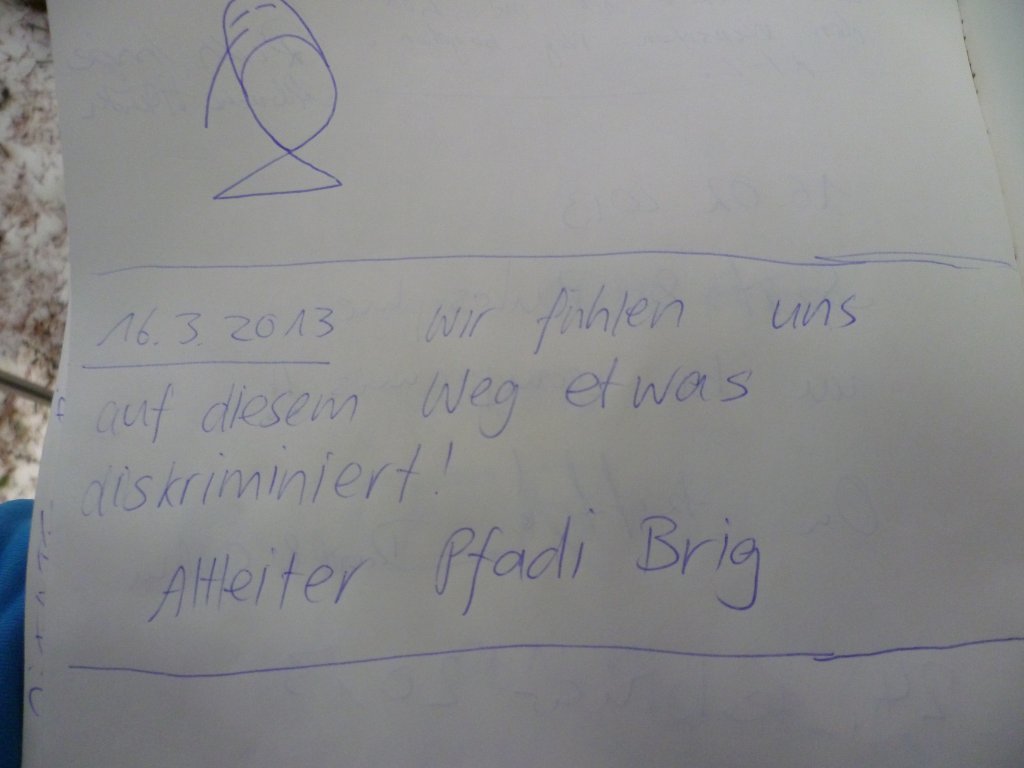 16.3.2013 wir fühlen uns
auf diesem Weg etwas
diskriminiert!
Altleiter Pfadi Brig